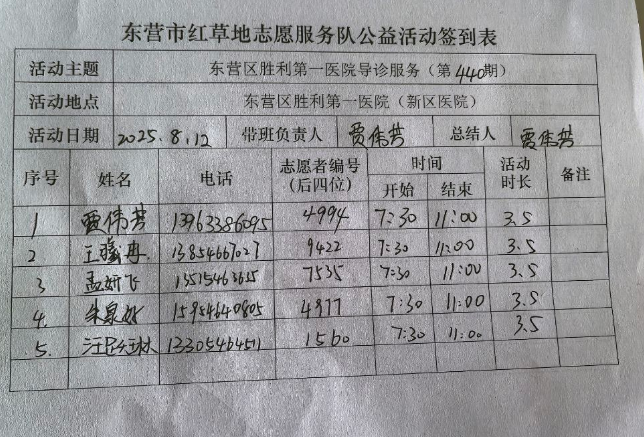 东营市红草地志愿服务队公益活动签到表
活动主题 东营区胜利第一医院导诊服务（第440期）
活动地点 东营区胜利第一医院（新区医院）
活动日期 2025.8.12 带班负责人 贾伟芳 总结人 贾伟芳
序号 姓名 电话 志愿者编号（后四位） 时间 开始 结束 活动时长 备注
1 贾伟芳 13963386095 4994 7:30 11:00 3.5
2 13854667027 9422 7:30 11:00 3.5
3 孟妍飞 13515463655 7535 7:30 11:00 3.5
4. 15954640805 4977 7:30 11:00 3.5
5. 13305464511 1560 7:30 11:00 3.5